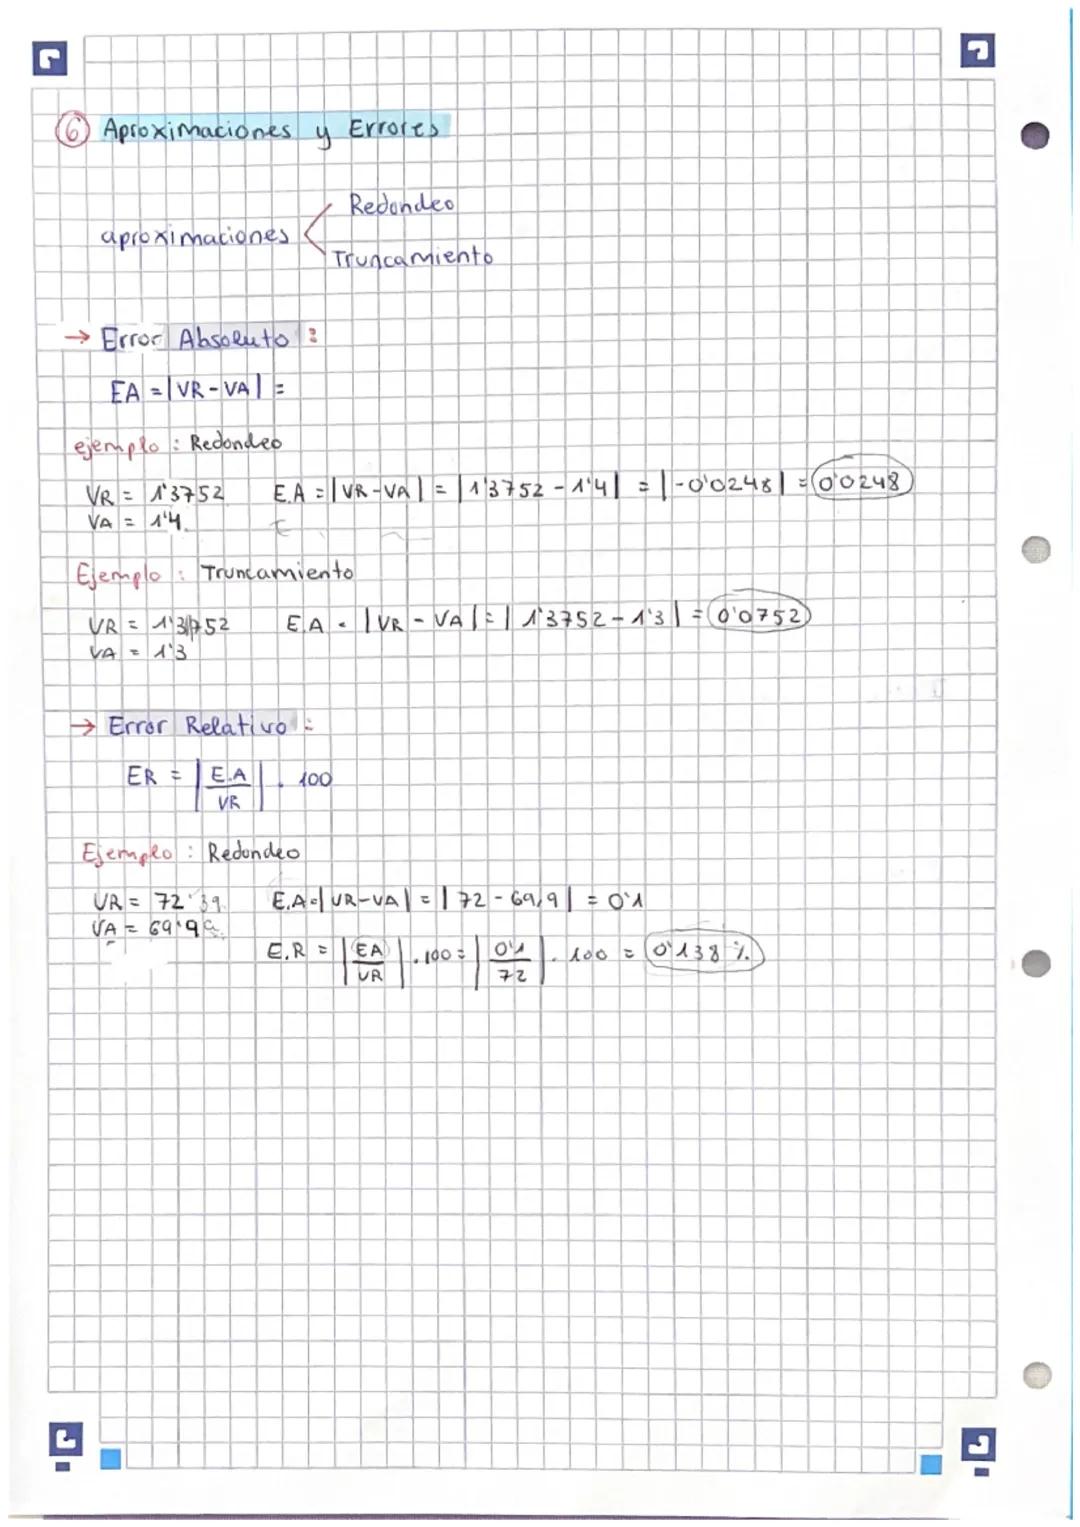 ⑥ Aproximaciones y Errores
aproximaciones < Redondeo
Truncamiento
→ Error Absoluto :
EA = |VR-VA| =
ejemplo : Redondeo
VR = 1'3752 E.A = |VR-VA| = |1'3752 - 1'4| = |-0'0248| = 0'0248
VA = 1'4
Ejemplo : Truncamiento
VR = 1'3752 E.A = |VR - VA| = |1'3752 - 1'3| = 0'0752
VA = 1'3
→ Error Relativo :
ER = |E.A/VR| . 100
Ejemplo : Redondeo
VR = 72'39 E.A = |VR-VA| = |72 - 69,9| = 0'1
VA = 69'9
E.R = |EA/VR| . 100 = |0'1/72| . 100 = 0'138 %